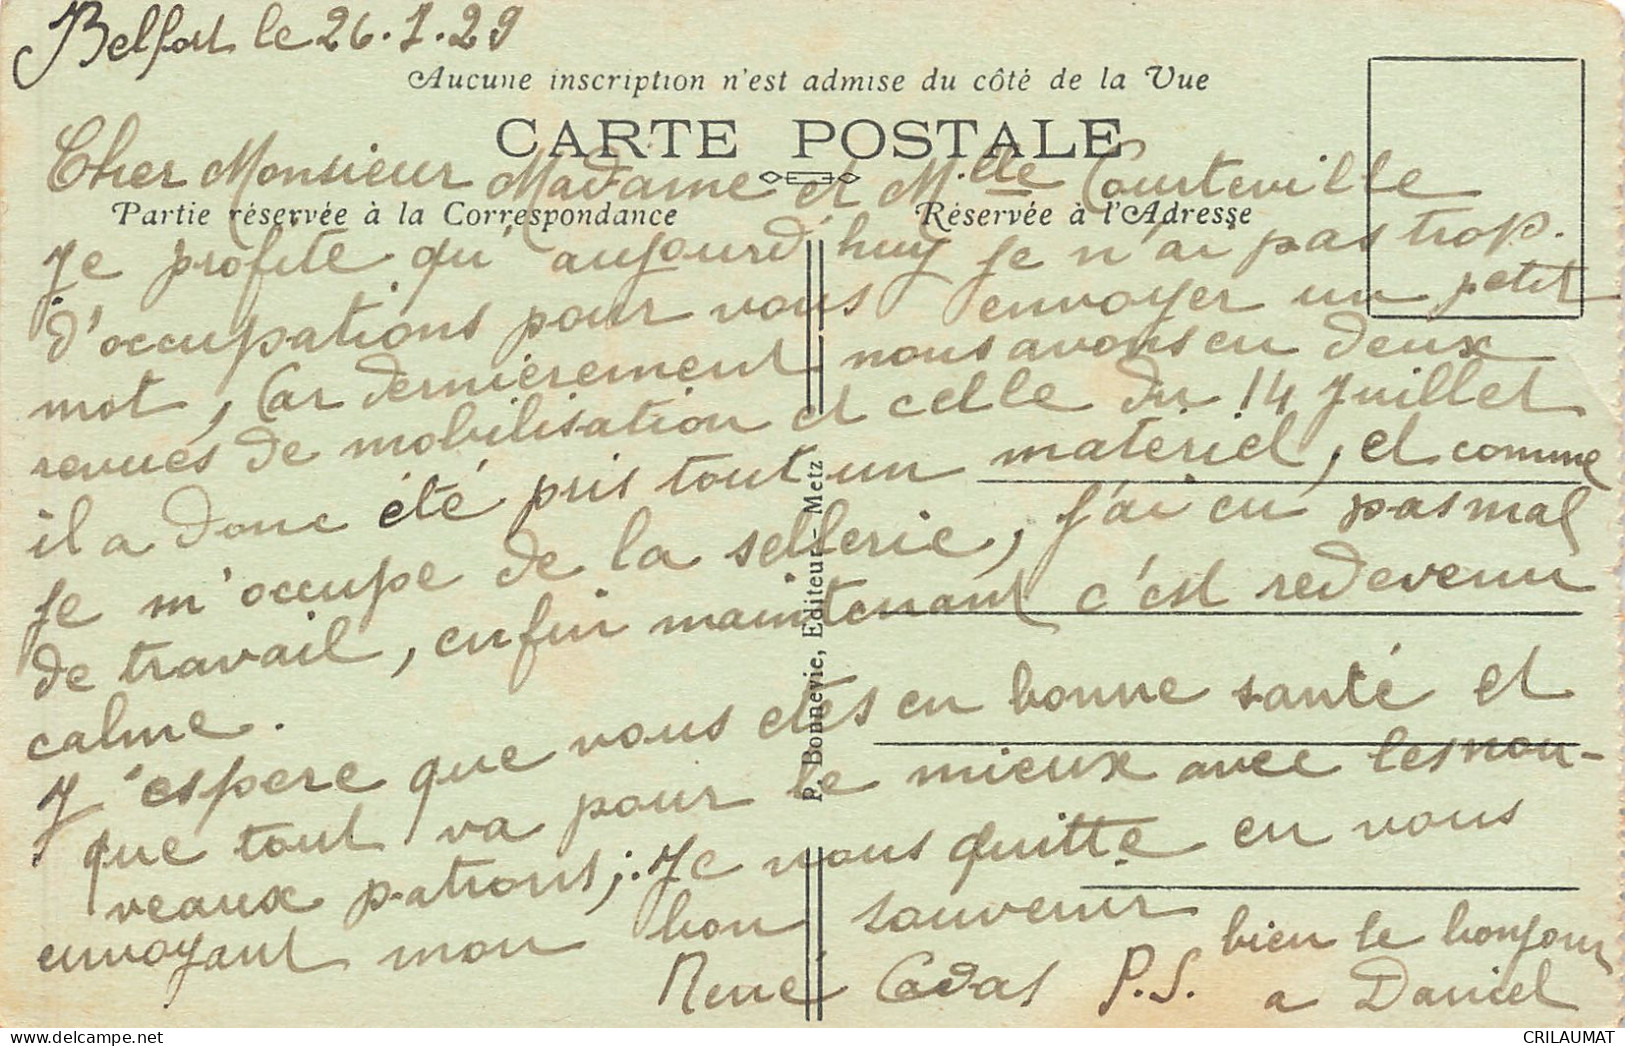 Belfort le 26.7.29
Aucune inscription n'est admise du côté de la Vue
CARTE POSTALE
Cher Monsieur Madame et Mlle Courteville
Partie réservée à la Correspondance
Réservée à l'Adresse
Je profite qu'aujourd'huy je n'ai pas trop
d'occupations pour vous envoyer un petit
mot, Car dernièrement nous avons eu deux
revues de mobilisation et celle du 14 Juillet
il a donc été pris tout un materiel, et comme
je m'occupe de la sellerie, j'ai eu pas mal
de travail, enfin maintenant c'est redevenu
calme.
J'espere que vous etes en bonne santé et
que tout va pour le mieux avec les nou-
veaux patrons; Je vous quitte en vous
envoyant mon bon souvenir
René Cadas P.S. bien le bonjour
a Daniel
P. Bonnevie, Editeur - Metz
CRILAUMAT